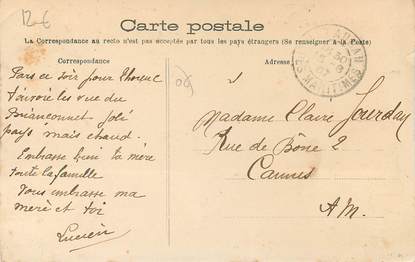 12€
Carte postale
La Correspondance au recto n'est pas acceptée par tous les pays étrangers (Se renseigner à la Poste)
Correspondance
Adresse
Pars ce soir pour Thorenc
t'envoie les vue du
Briançonnet joli
pays mais chaud.
Embrasse bien ta mère
toute la famille
Vous embrasse ma
mère et toi
Lucien
Madame Claire Jourdan
Rue de Bône 2
Cannes
A.M.
MARITIMES